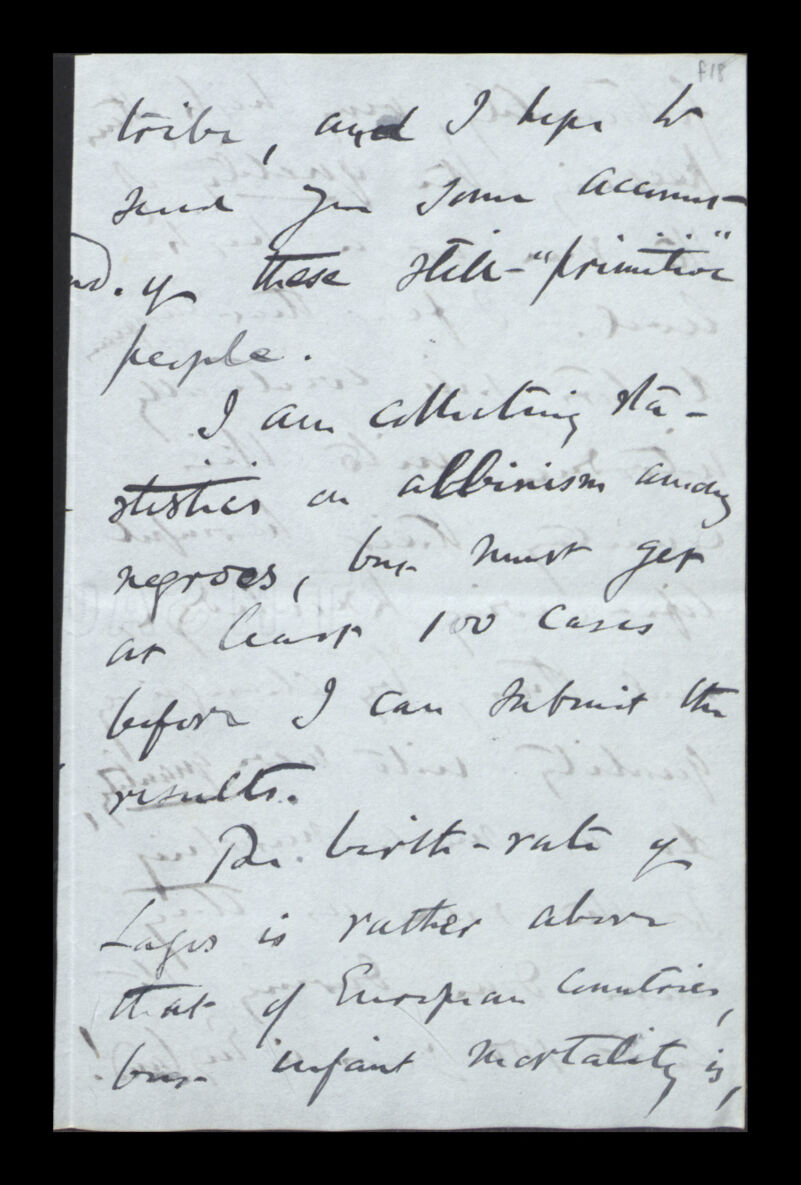 f18
tribe, and I hope to
send you some account
of these still-"primitive"
people.
I am collecting sta-
stistics on albinism among
negroes, but must get
at least 100 cases
before I can submit the
results.
The birth-rate of
Lagos is rather above
that of European countries,
but infant mortality is,